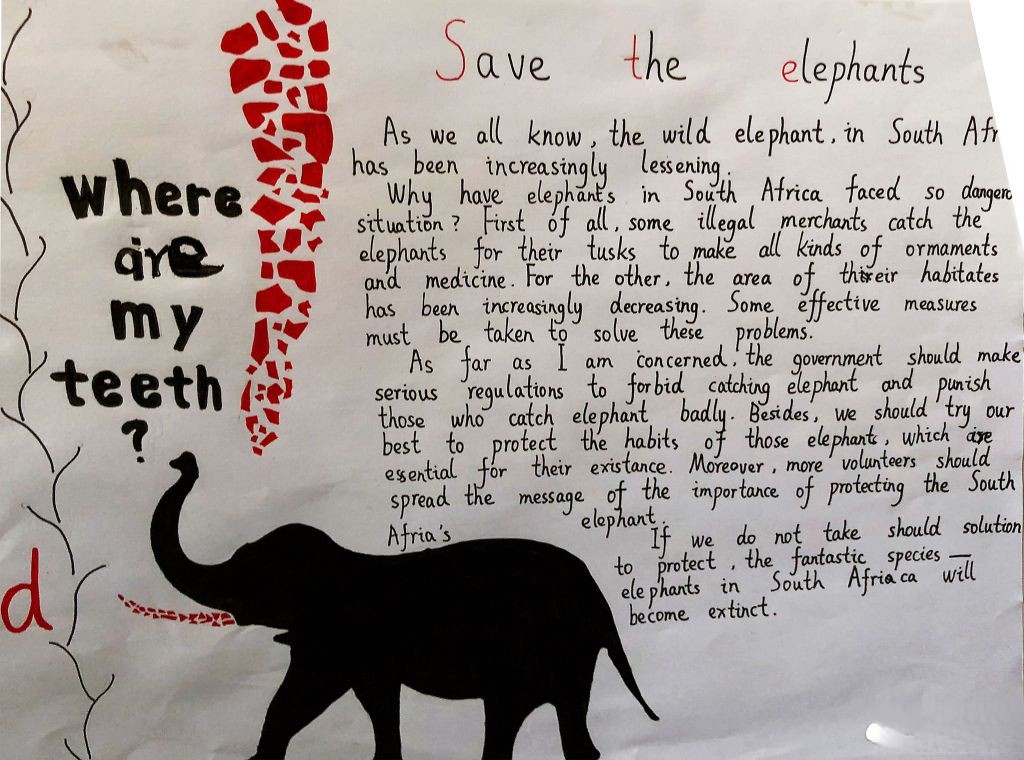 Save the elephants
where
are
my
teeth
?
As we all know, the wild elephant, in South Afr
has been increasingly lessening.
Why have elephants in South Africa faced so dangero
situation? First of all, some illegal merchants catch the
elephants for their tusks to make all kinds of ormaments
and medicine. For the other, the area of their habitates
has been increasingly decreasing. Some effective measures
must be taken to solve these problems.
As far as I am concerned, the government should make
serious regulations to forbid catching elephant and punish
those who catch elephant badly. Besides, we should try our
best to protect the habits of those elephant, which are
essential for their existance. Moreover, more volunteers should
spread the message of the importance of protecting the South
Afria's elephant.
If we do not take should solution
to protect, the fantastic species —
elephants in South Africa will
become extinct.
d